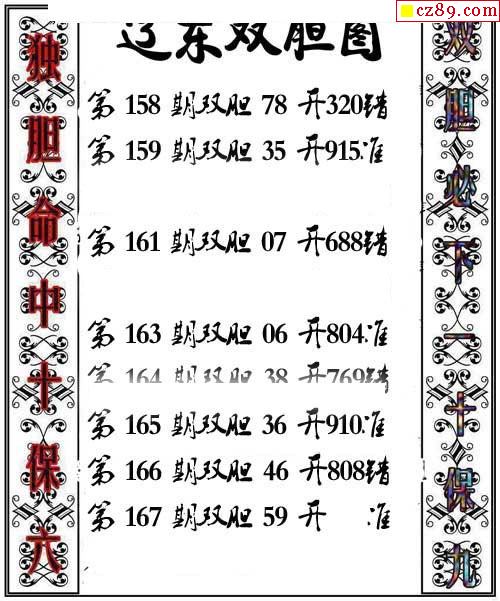 cz89.com
辽东双胆图
独胆命中十保六
第 158 期双胆 78 开320错
第 159 期双胆 35 开915准
第 161 期双胆 07 开688错
第 163 期双胆 06 开804准
第 164 期双胆 38 开769错
第 165 期双胆 36 开910准
第 166 期双胆 46 开808错
第 167 期双胆 59 开 准
双胆必下一十保九